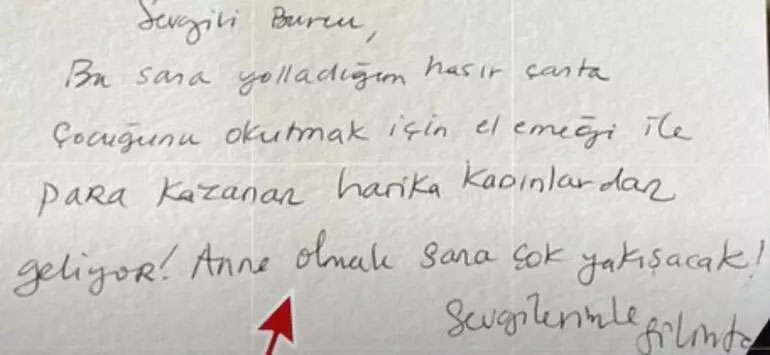 Sevgili Burcu,
Bu sana yolladığım hasır çanta
Çocuğunu okutmak için el emeği ile
para kazanan harika kadınlardan
geliyor! Anne olmak sana çok yakışacak!
Sevgilerimle